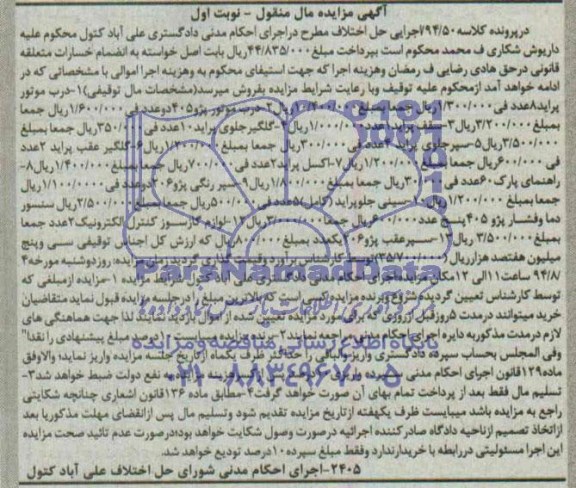 آگهی مزایده مال منقول - نوبت اول
درپرونده کلاسه ۹۴/۵۰/اجرایی حل اختلاف مطرح دراجرای احکام مدنی دادگستری علی آباد کتول محکوم علیه
داریوش شکاری ف محمد محکوم است بپرداخت مبلغ ۴۴/۸۳۵/۰۰۰ریال بابت اصل خواسته به انضمام خسارات متعلقه
قانونی درحق هادی رضایی ف رمضان وهزینه اجرا که جهت استیفای محکوم به وهزینه اجرا اموالی با مشخصاتی که در
ادامه خواهد آمد ازمحکوم علیه توقیف وبا رعایت شرایط مزایده بفروش میرسد(مشخصات مال توقیفی)۱-درب موتور
پراید ۸عدد ازفی ۱/۳۰۰/۰۰۰ریال جمعا بمبلغ ریال ۲-درب موتور پژو ۴۰۵ دوعدد فی ۱/۶۰۰/۰۰۰ریال جمعا
بمبلغ ۳/۲۰۰/۰۰۰ریال ۳-سقف پراید ۱عدد ۱/۰۰۰/۰۰۰ریال ۴-گلگیرجلوی پراید ۱۰عدد فی ۳۵۰/۰۰۰ریال جمعا بمبلغ
۳/۵۰۰/۰۰۰ریال ۵-سپرجلوی پراید ۴عدد فی ۳۰۰/۰۰۰ریال جمعا بمبلغ ۱/۲۰۰/۰۰۰ریال ۶-گلگیر عقب پراید ۲عدد
فی ۶۰۰/۰۰۰ریال جمعا بمبلغ ۱/۲۰۰/۰۰۰ریال ۷-اکسل پراید ۲عدد فی ۷۰۰/۰۰۰ریال جمعا بمبلغ ۱/۴۰۰/۰۰۰ریال ۸-
راهنمای پارک ۶۰عدد فی ریال جمعا بمبلغ ۱/۸۰۰/۰۰۰ریال ۹-سپر رنگی پژو ۲۰۶ دوعدد فی ۱/۱۰۰/۰۰۰ریال
جمعا بمبلغ ۱/۲۰۰/۰۰۰ریال ۱۰-سینی جلوپراید (کامل) ۵عدد فی ۵۰۰/۰۰۰ریال جمعا بمبلغ ۲/۵۰۰/۰۰۰ریال سنسور
دما وفشار پژو ۴۰۵ پنج عدد ۶۰۰/۰۰۰ریال جمعا ۳/۰۰۰/۰۰۰ریال ۱۲-لوازم گازسوز کنترل الکترونیک ۲عدد جمعا
بمبلغ ۳/۵۰۰/۰۰۰ ریال ۱۳-سپرعقب پژو ۲۰۶ یکعدد بمبلغ ۸۰۰/۰۰۰ریال که ارزش کل اجناس توقیفی سی وپنج
میلیون هفتصد هزارریال (۳۵/۷۰۰/۰۰۰) توسط کارشناس برآورد وقیمت گذاری گردید زمان مزایده: روزدوشنبه مورخه ۴
/۹۴/۸ ساعت ۱۱الی ۱۲ مکان اجرای احکام مدنی دادگستری علی آباد کتول شرایط مزایده ۱-مزایده ازمبلغی که
توسط کارشناس تعیین گردیده شروع وبرنده مزایده کسی است که بالاترین مبلغ را درجلسه مزایده قبول نماید متقاضیان
خرید میتوانند درمدت ۵روزقبل ازروزی که برای مزایده تعیین شده از اموال بازدید نمایند لذا جهت هماهنگی های
لازم درمدت مذکوربه دایره اجرای احکام مدنی مراجعه نمایند ۲-برنده مزایده مبلغ پیشنهادی را نقدا"
وفی المجلس بحساب سپرده دادگستری واریز والباقی را حداکثر ظرف یکماه ازتاریخ جلسه مزایده واریز نماید؛ والاوفق
ماده ۱۲۹قانون اجرای احکام مدنی سپرده به نفع دولت ضبط خواهد شد ۳-
تسلیم مال فقط بعد از پرداخت تمام بهای آن صورت خواهد گرفت ۴-مطابق ماده ۱۳۶قانون اشعاری چنانچه شکایتی
راجع به مزایده باشد میبایست ظرف یکهفته ازتاریخ مزایده تقدیم شود وتسلیم مال پس ازانقضای مهلت مذکوریا بعد
ازاتخاذ تصمیم ازناحیه دادگاه صادر کننده اجرائیه درصورت وصول شکایت خواهد بود؛درصورت عدم تائید صحت مزایده
این اجرا مسئولیتی دررابطه با خریدارندارد وفقط مبلغ سپرده ۱۰درصد تودیع خواهد شد.
۲۴۰۵-اجرای احکام مدنی شورای حل اختلاف علی آباد کتول
ParsNamadData
پایگاه اطلاع رسانی مناقصه و مزایده
۰۲۱-۸۸۳۴۹۶۷۰-۵